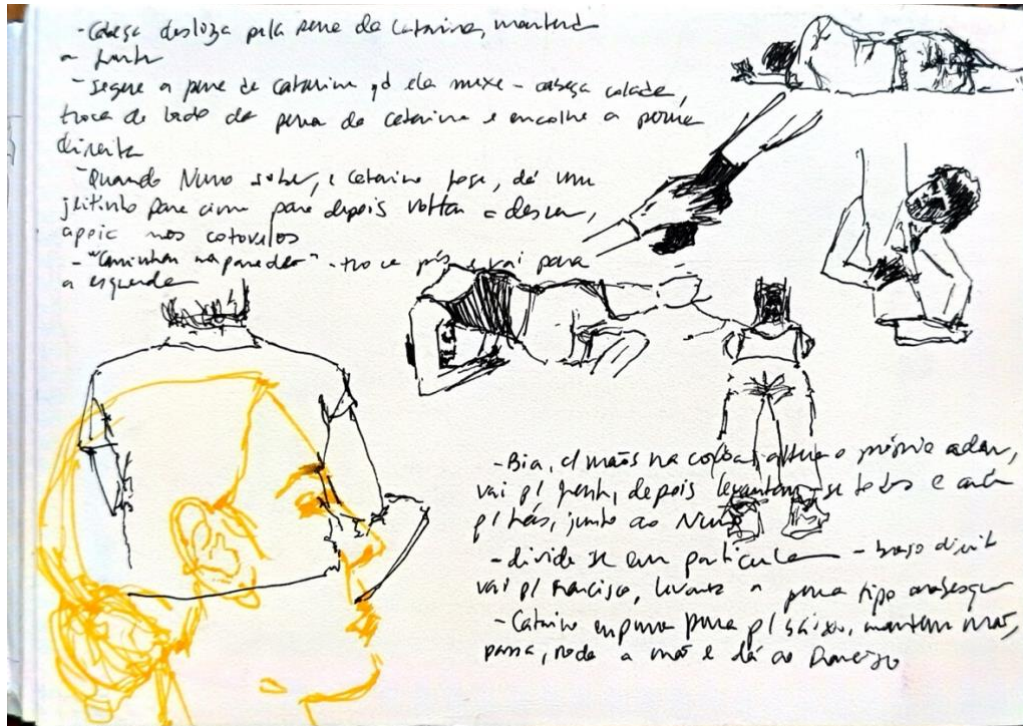 - Cabeça desliza pela perna da Catarina, mantend
a frente
- Segue a perna de Catarina qd ela mexe - cabeça colada,
troca de lado da perna da Catarina e encolhe a perna
direita
- Quando Nuno sobe, e Catarina foge, dá um
jeitinho para cima para depois voltar a descer,
apoia nos cotovelos
- "Caminhar na parede" - troca pés e vai para
a esquerda
- Bia, c/ mãos na altura o próprio andar,
vai p/ frente, depois levantam-se todos e
p/ trás, junto ao Nuno
- divide se em particula - braço direit
vai p/ Francisco, levanta a perna tipo arabesque
- Catarina empurra perna p/ baixo, mantem mão,
passa, roda a mão e dá ao Francisco